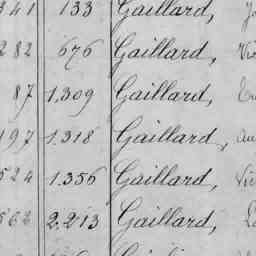 341 133 Gaillard,
282 676 Gaillard,
87 1,309 Gaillard,
197 1.318 Gaillard,
524 1.356 Gaillard,
562 2,213 Gaillard,